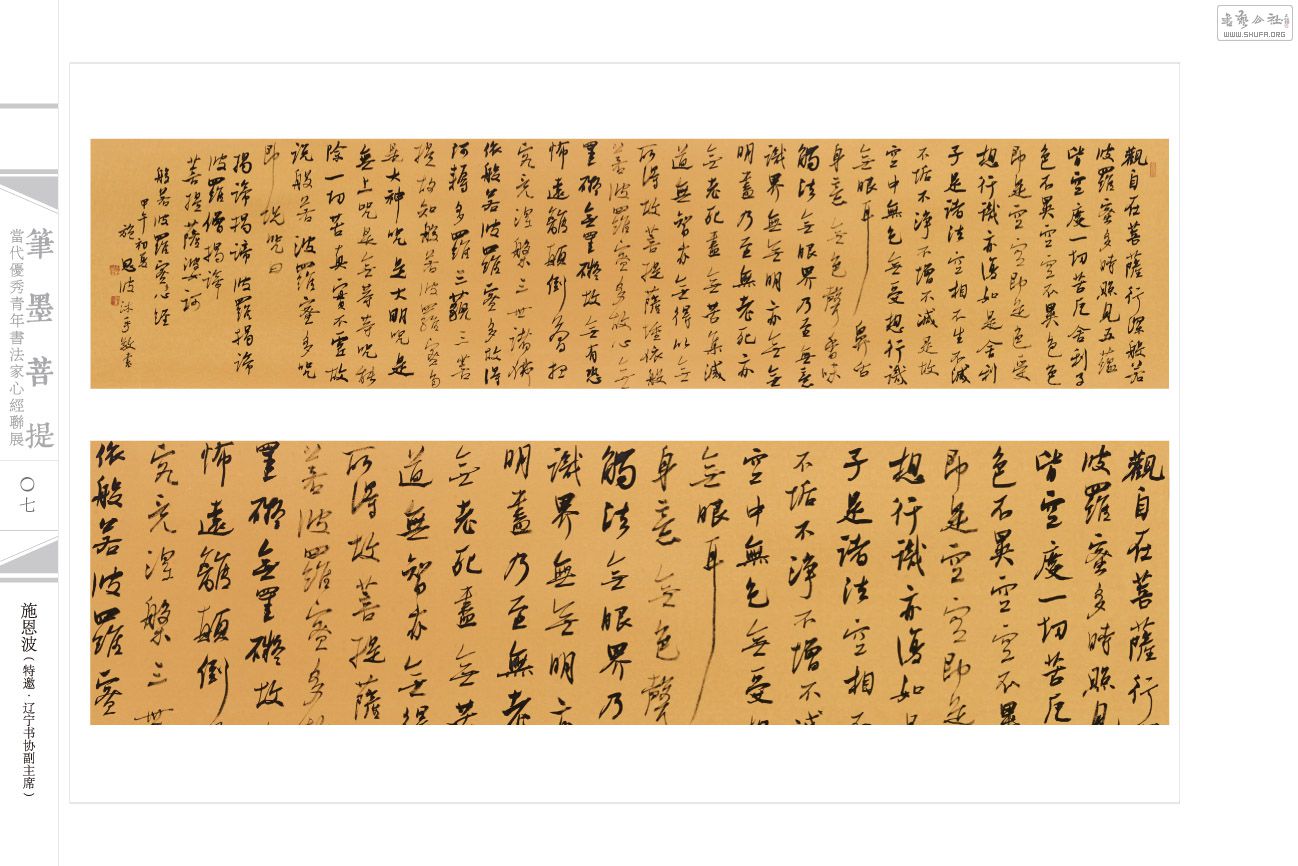 書藝公社
WWW.SHUFA.ORG
觀自在菩薩行深般若
波羅蜜多時照見五蘊
皆空度一切苦厄舍利子
色不異空空不異色色
即是空空即是色受
想行識亦復如是舍利
子是諸法空相不生不滅
不垢不淨不增不減是故
空中無色無受想行識
無眼耳鼻舌
身意無色聲香味
觸法無眼界乃至無意
識界無無明亦無無
明盡乃至無老死亦
無老死盡無苦集滅
道無智亦無得以無
所得故菩提薩埵依般
若波羅蜜多故心無
罣礙無罣礙故無有恐
怖遠離顛倒夢想
究竟涅槃三世諸佛
依般若波羅蜜多故得
阿耨多羅三藐三菩
提故知般若波羅蜜多
是大神咒是大明咒是
無上咒是無等等咒能
除一切苦真實不虛故
說般若波羅蜜多咒
即說咒曰
揭諦揭諦波羅揭諦
波羅僧揭諦
菩提薩婆訶
般若波羅蜜心經
甲午初夏
施恩波沐手敬書
觀自在菩薩行
波羅蜜多時照見
皆空度一切苦厄
色不異空空不異
即是空空即是
想行識亦復如是
子是諸法空相不
不垢不淨不增不減
空中無色無受想
無眼耳
身意無色聲
觸法無眼界乃
識界無無明亦
明盡乃至無老
無老死盡無苦
道無智亦無得
所得故菩提薩
若波羅蜜多故
罣礙無罣礙故
怖遠離顛倒
究竟涅槃三世
依般若波羅蜜
筆墨菩提
當代優秀青年書法家心經聯展
〇七
施恩波(特邀·辽宁书协副主席)